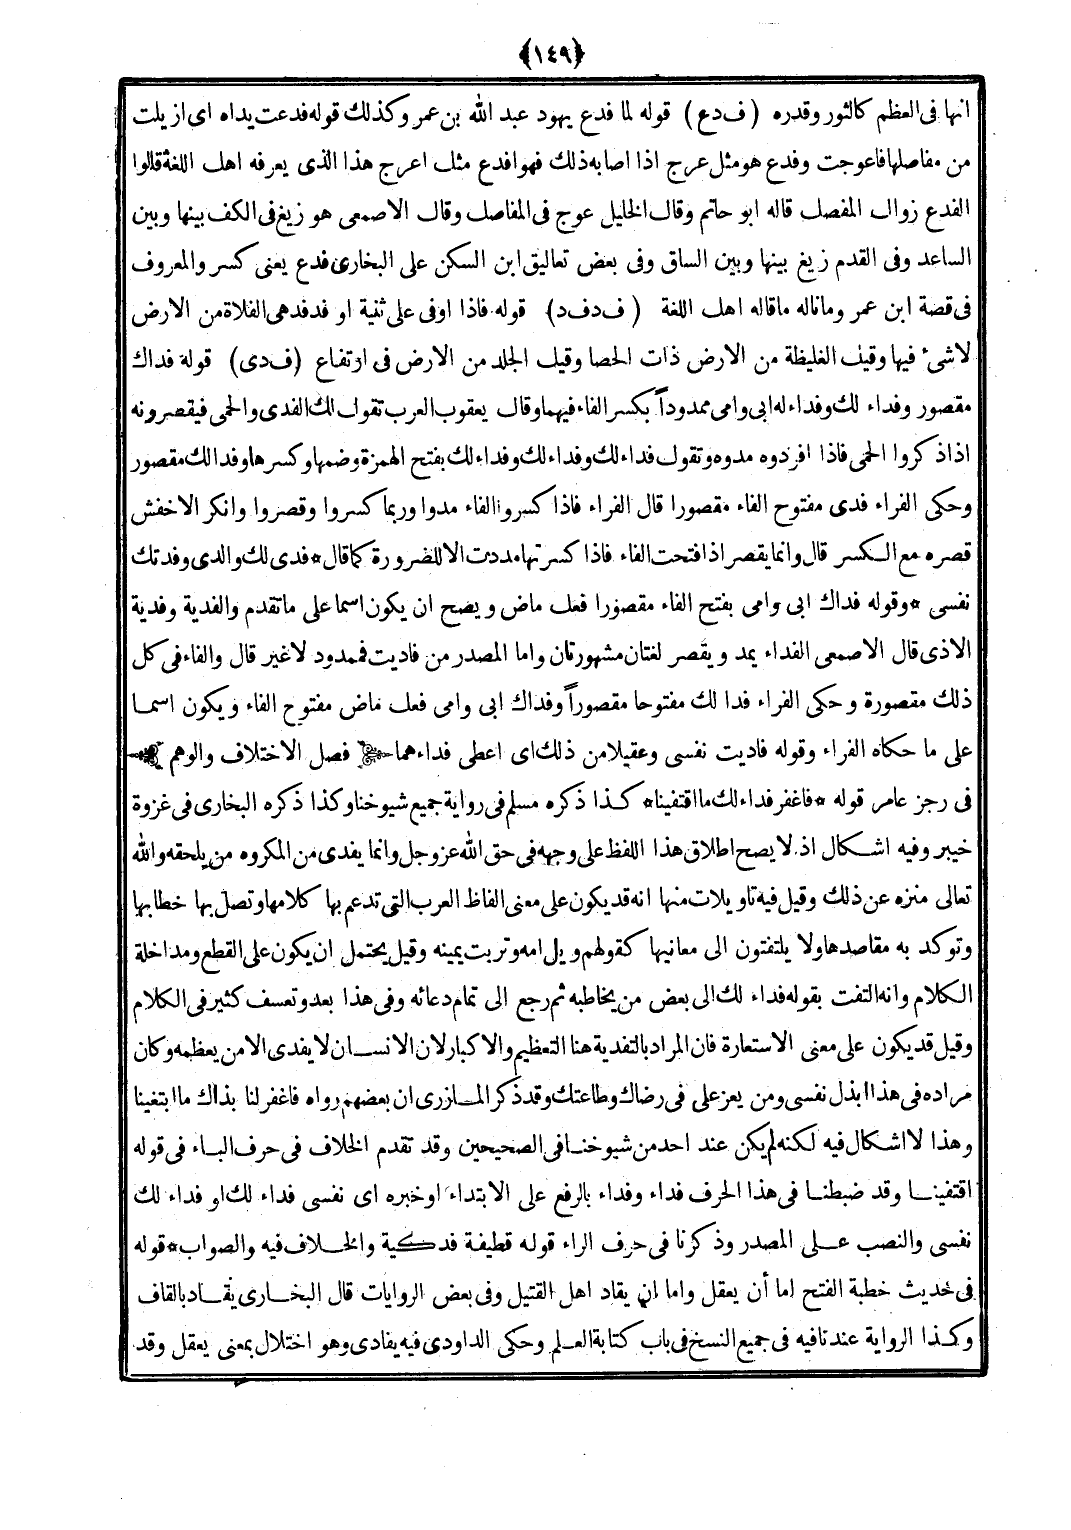 ﴿١٤٩﴾
انها فى العظم كالثور وقدره (ف د ع) قوله لما فدع يهود عبد الله بن عمر وكذلك قوله فدعت يداه اى ازيلت
من مفاصلها فاعوجت وفدع هو مثل عرج اذا اصابه ذلك فهو افدع مثل اعرج هذا الذى يعرفه اهل اللغة قالوا
الفدع زوال المفصل قاله ابو حاتم وقال الخليل عوج فى المفاصل وقال الاصمعى هو زيغ فى الكف بينها وبين
الساعد وفى القدم زيغ بينها وبين الساق وفى بعض تعاليق ابن السكن على البخارى فدع يعنى كسر والمعروف
فى قصة ابن عمر وماناله ماقاله اهل اللغة (ف د ف د) قوله فاذا اوفى على ثنية او فدفد هى الفلاة من الارض
لا شئ فيها وقيل الغليظة من الارض ذات الحصا وقيل الجلد من الارض فى ارتفاع (ف د ى) قوله فداك
مقصور وفداء لك وفداء له ابى وامى ممدوداً بكسر الفاء فيهما وقال يعقوب العرب تقول لك الفدى والحمى فيقصرونه
اذا ذكروا الحمى فاذا افردوه مدوه وتقول فداء لك وفداء لك وفداء لك بفتح الهمزة وضمها وكسرها وفدا لك مقصور
وحكى الفراء فدى مفتوح الفاء مقصورا قال الفراء فاذا كسروا الفاء مدوا وربما كسروا وقصروا وانكر الاخفش
قصره مع الكسر قال وانما يقصر اذا فتحت الفاء فاذا كسرتها مددت الا للضرورة كما قال * فدى لك والدى وفدتك
نفسى * وقوله فداك ابى وامى بفتح الفاء مقصورا فعل ماض ويصح ان يكون اسما على ما تقدم والفدية وفدية
الاذى قال الاصمعى الفداء يمد ويقصر لغتان مشهورتان واما المصدر من فاديت فممدود لا غير قال والفاء فى كل
ذلك مقصورة وحكى الفراء فدا لك مفتوحا مقصوراً وفداك ابى وامى فعل ماض مفتوح الفاء ويكون اسما
على ما حكاه الفراء وقوله فاديت نفسى وعقيلا من ذلك اى اعطى فداءهما فصل الاختلاف والوهم
فى رجز عامر قوله * فاغفر فداء لك ما اقتفينا * كذا ذكره مسلم فى رواية جميع شيوخنا وكذا ذكره البخارى فى غزوة
خيبر وفيه اشكال اذ لا يصح اطلاق هذا اللفظ على وجهه فى حق الله عز وجل وانما يفدى من المكروه من يلحقه والله
تعالى منزه عن ذلك وقيل فيه تاويلات منها انه قد يكون على معنى الفاظ العرب التى تدعم بها كلامها وتصل بها خطابها
وتوكد به مقاصدها ولا يلتفتون الى معانيها كقولهم ويل امه وتربت يمينه وقيل يحتمل ان يكون على القطع ومداخلة
الكلام وانه التفت بقوله فداء لك الى بعض من يخاطبه ثم رجع الى تمام دعائه وفى هذا بعد وتعسف كثير فى الكلام
وقيل قد يكون على معنى الاستعارة فان المراد بالتفدية هنا التعظيم والاكبار لان الانسان لا يفدى الا من يعظمه وكان
مراده فى هذا ابذل نفسى ومن يعز على فى رضاك وطاعتك وقد ذكر المازرى ان بعضهم رواه فاغفر لنا بذاك ما ابتغينا
وهذا لا اشكال فيه لكنه لم يكن عند احد من شيوخنا فى الصحيحين وقد تقدم الخلاف فى حرف الباء فى قوله
اقتفينا وقد ضبطنا فى هذا الحرف فداء وفداء بالرفع على الابتداء او خبره اى نفسى فداء لك او فداء لك
نفسى والنصب على المصدر وذكرنا فى حرف الراء قوله قطيفة فدكية والخلاف فيه والصواب * قوله
فى حديث خطبة الفتح اما أن يعقل واما ان يقاد اهل القتيل وفى بعض الروايات قال البخارى يقاد بالقاف
وكذا الرواية عندنا فيه فى جميع النسخ فى باب كتابة العلم وحكى الداودى فيه يفادى وهو اختلال بمعنى يعقل وقد